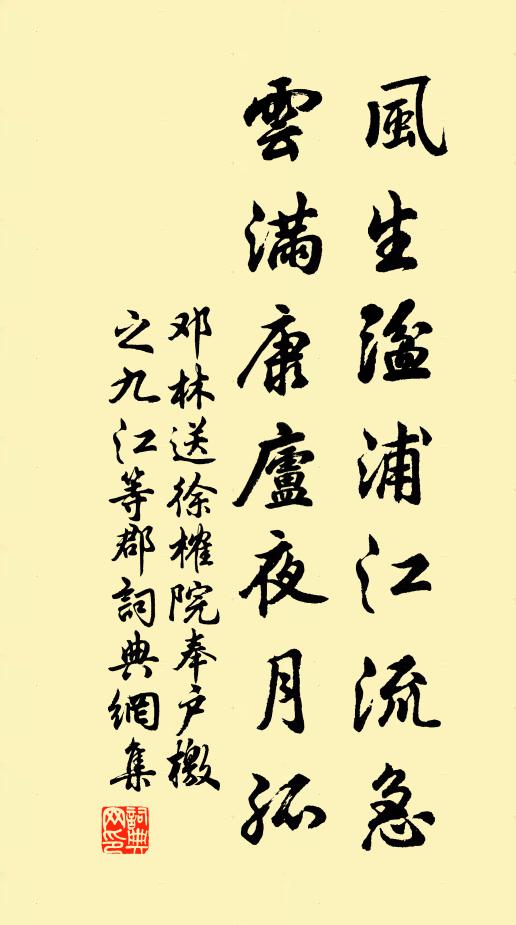 風生湓浦江流急
雲滿康廬夜月孤
邓林送徐榷院奉户檄
之九江等郡詞典網集
詞典网印